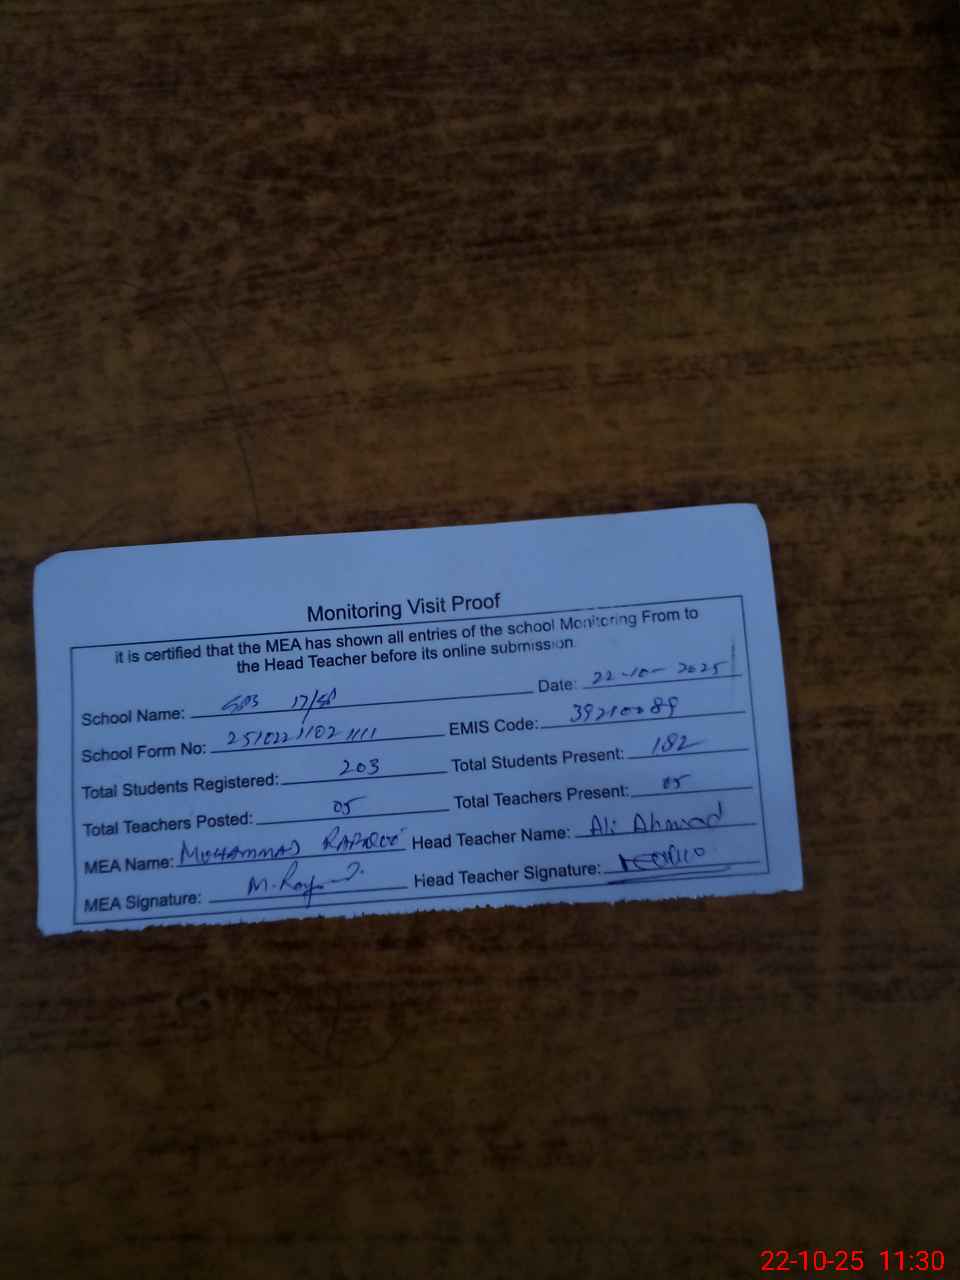 Monitoring Visit Proof
it is certified that the MEA has shown all entries of the school Monitoring From to
the Head Teacher before its online submission.
School Name: 17/SP Date: 22-10-2025
School Form No: EMIS Code: 39210089
Total Students Registered: 203 Total Students Present: 182
Total Teachers Posted: 05 Total Teachers Present: 05
MEA Name: MUHAMMAD Head Teacher Name: Ali Ahmad
MEA Signature: Head Teacher Signature:
22-10-25 11:30